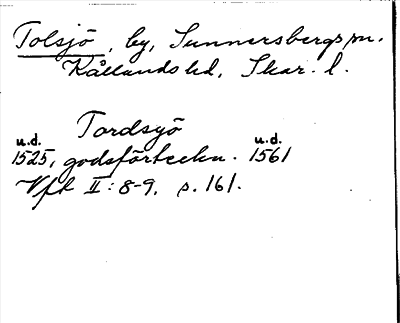 Tolsjö, by, Sunnersbergs sn.
Kållands hd, Skar. l.
Tordsyö
u.d. u.d.
1525, godsförteckn. 1561
Vfk II: 8-9, s. 161.